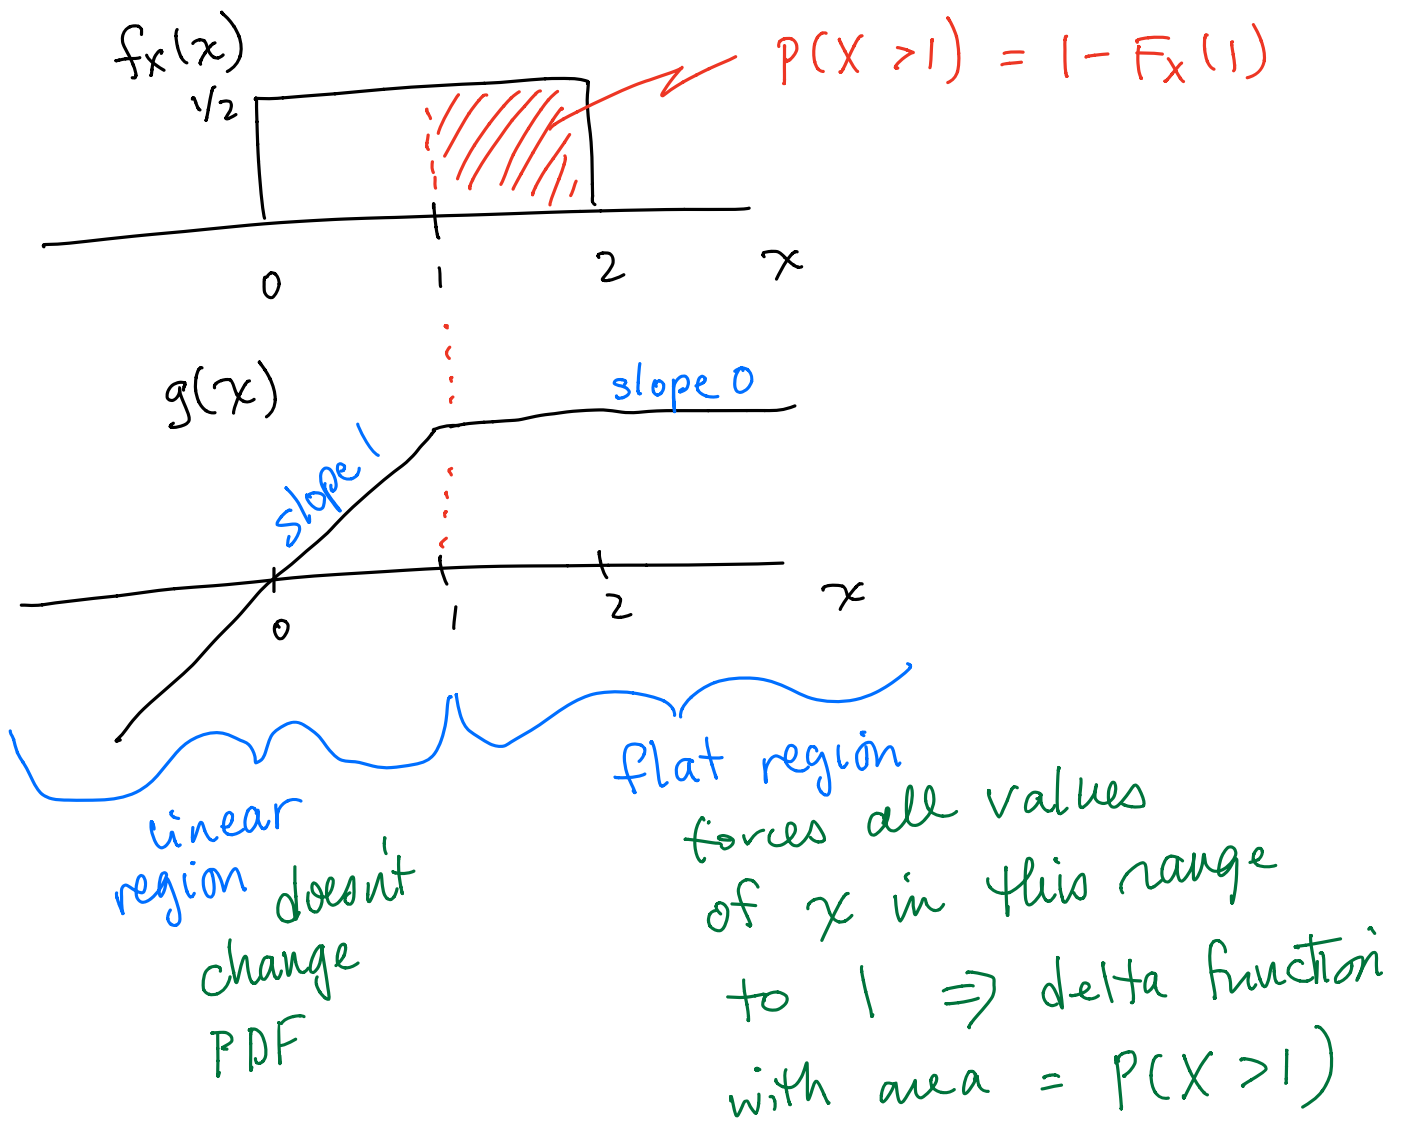 fx(x)
P(X > 1) = 1 - Fx(1)
1/2
0 1 2 x
g(x)
slope 0
slope 1
0 1 2 x
linear
region doesn't
change
PDF
flat region
forces all values
of x in this range
to 1 ⇒ delta function
with area = P(X > 1)